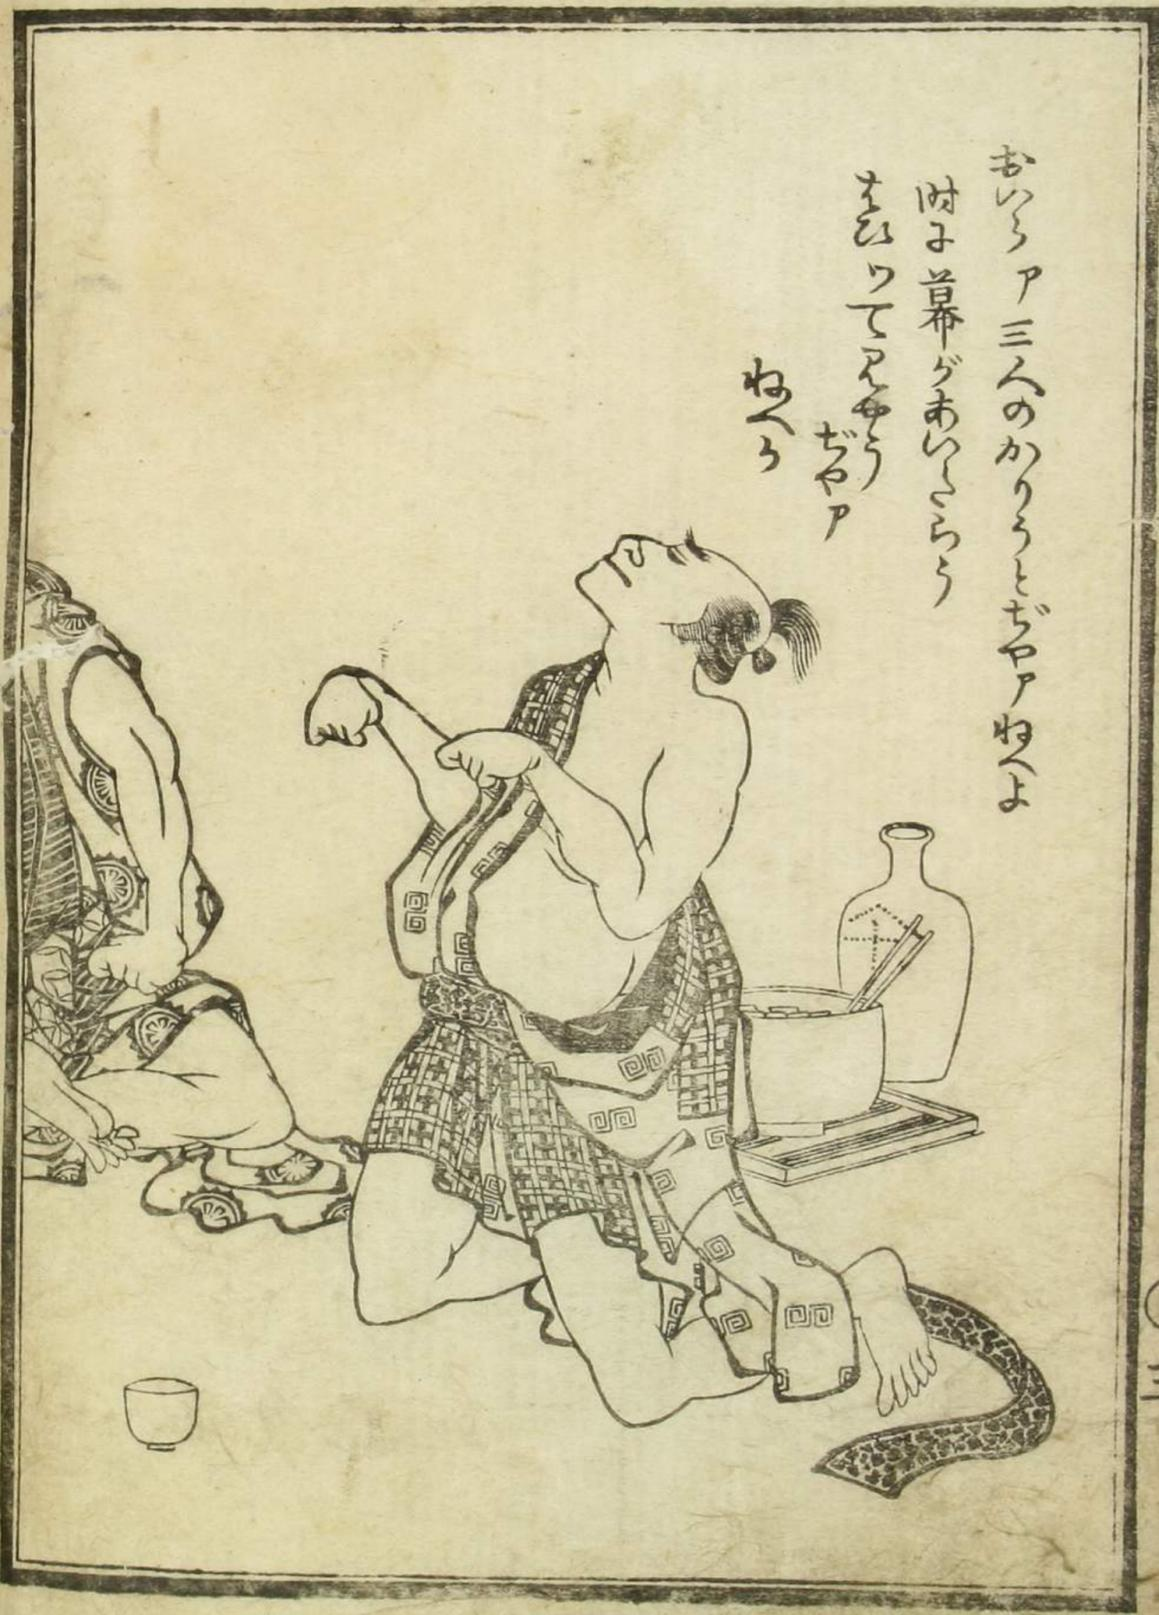 おいらア三人のかりうとぢやアねへよ
時に幕があいたらう
はひツて見やう
ぢやア
ねへか